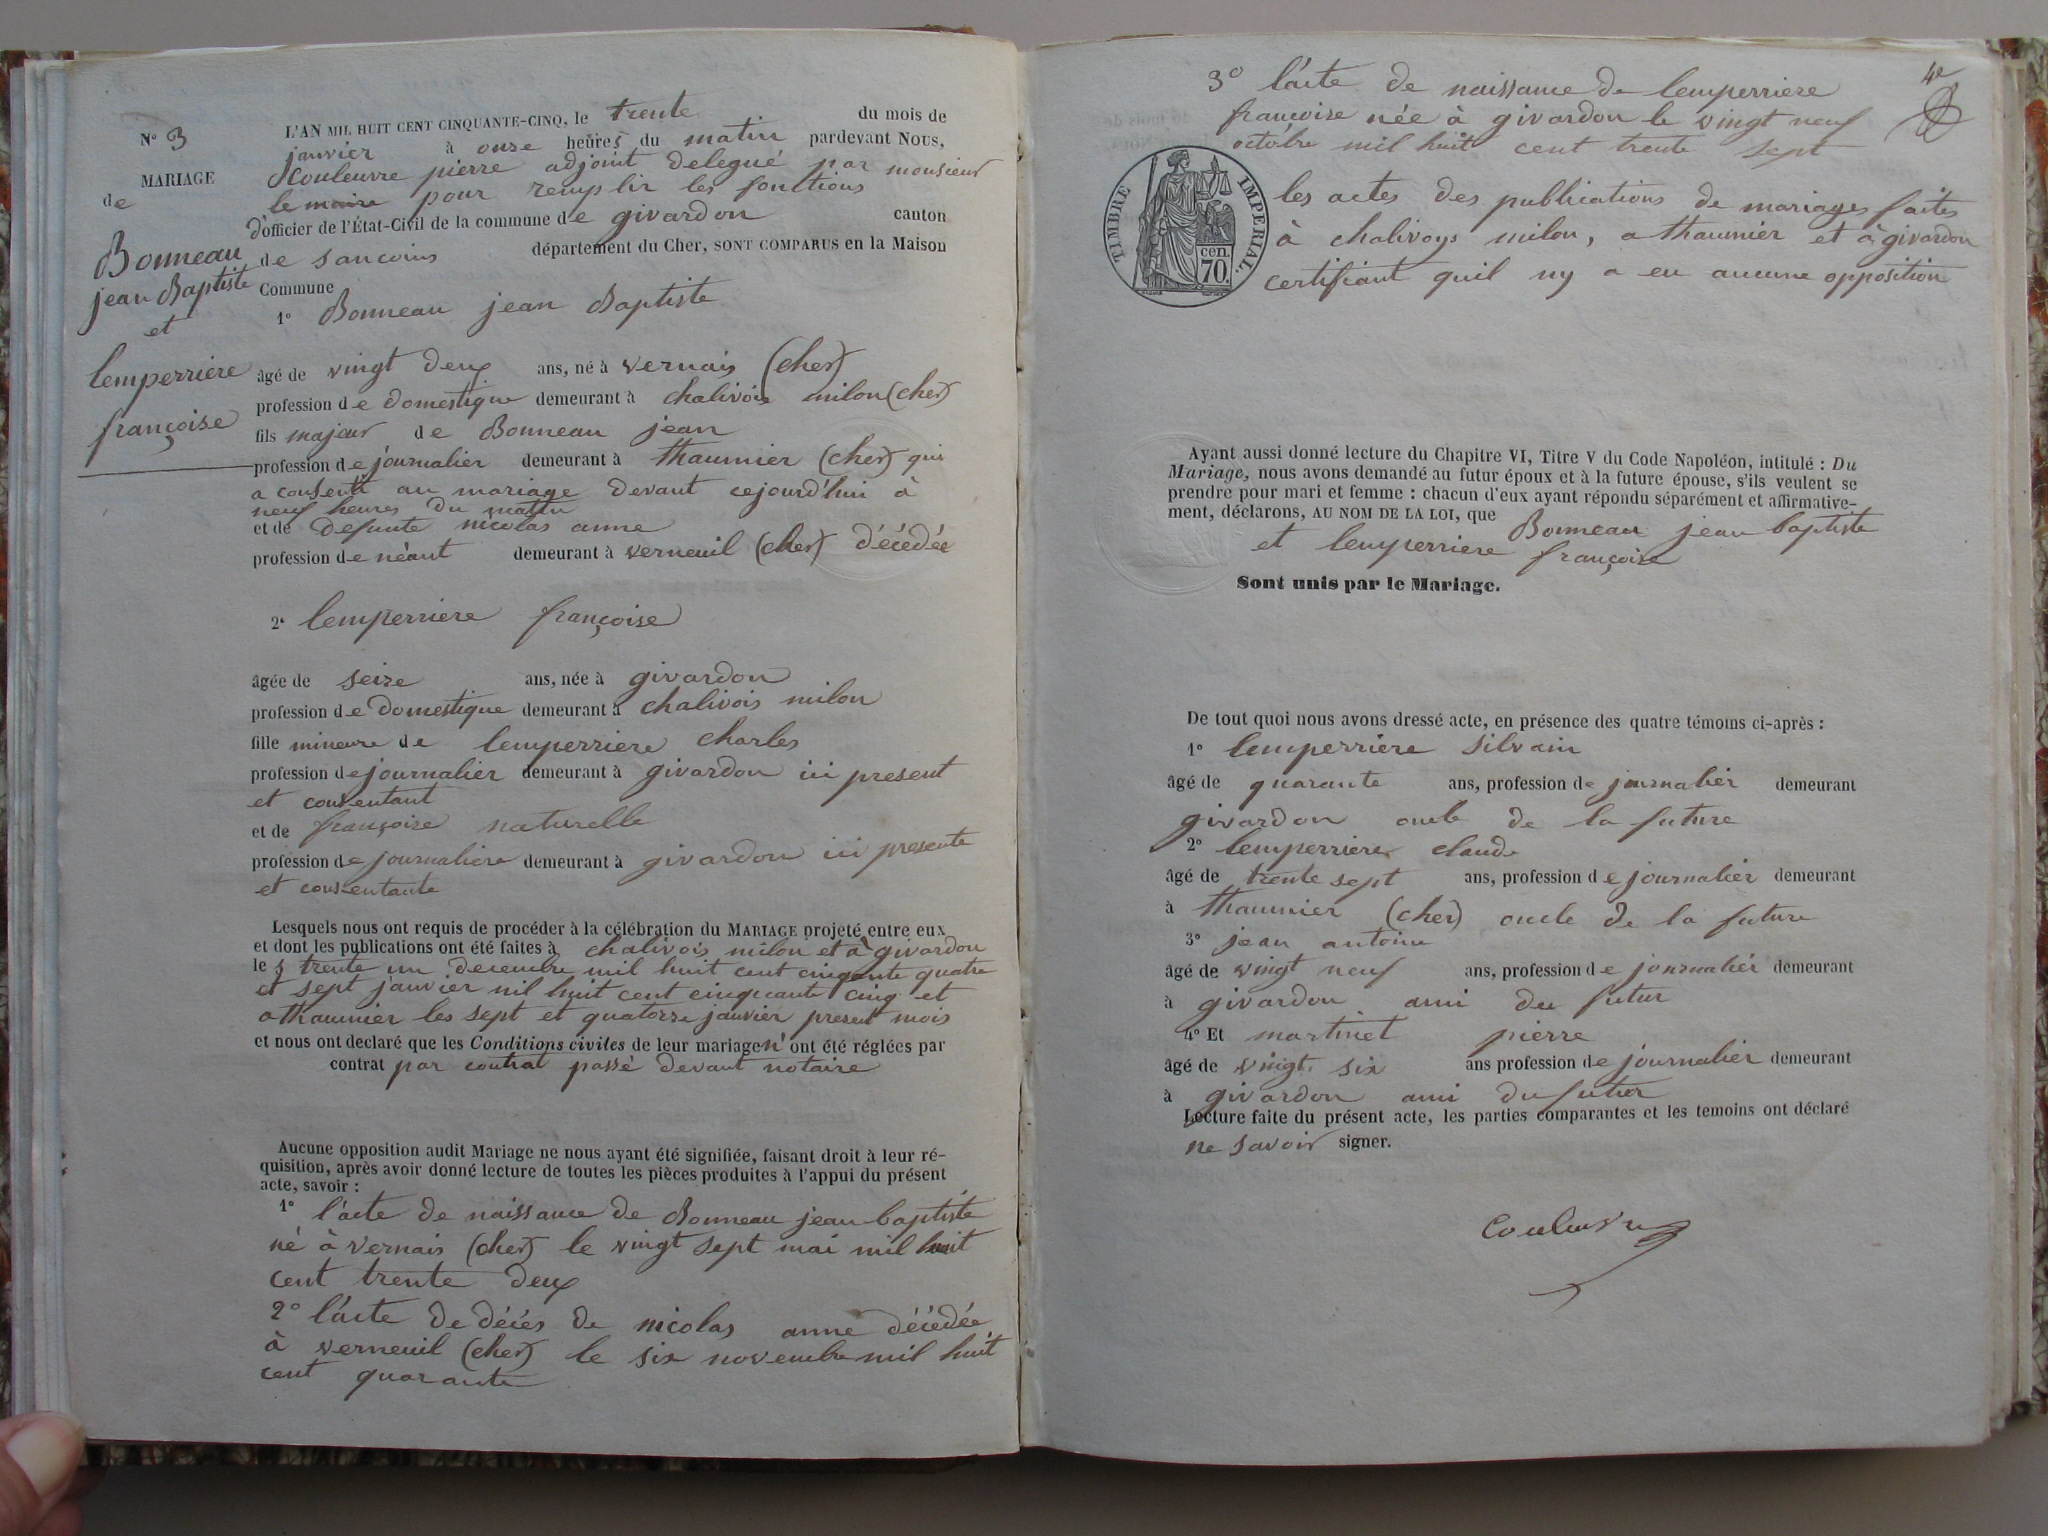 N° 3
MARIAGE
de
Bonneau
jean Baptiste
et
lemperriere
françoise
L'AN MIL HUIT CENT CINQUANTE-CINQ, le trente du mois de
janvier à onze heures du matin pardevant Nous,
Couleuvre pierre adjoint delegué par monsieur
le maire pour remplir les fonctions
d'officier de l'État-Civil de la commune de givardon canton
de sancoins département du Cher, SONT COMPARUS en la Maison
Commune
1° Bonneau jean Baptiste
âgé de vingt deux ans, né à vernais (cher)
profession de domestique demeurant à chalivois milon (cher)
fils majeur de Bonneau jean
profession de journalier demeurant à thaumier (cher) qui
a consenti au mariage devant cejourd'hui à
neuf heures du matin
et de defunte nicolas anne
profession de néant demeurant à verneuil (cher) décédée
2° lemperriere françoise
âgée de seize ans, née à givardon
profession de domestique demeurant à chalivois milon
fille mineure de lemperriere charles
profession de journalier demeurant à givardon ici present
et consentant
et de françoise naturelle
profession de journaliere demeurant à givardon ici presente
et consentante
Lesquels nous ont requis de procéder à la célébration du MARIAGE projeté entre eux
et dont les publications ont été faites à chalivois milon et à givardon
les trente un decembre mil huit cent cinqante quatre
et sept janvier mil huit cent cinquante cinq et
a thaumier les sept et quatorze janvier present mois
et nous ont declaré que les Conditions civiles de leur mariage n'ont été réglées par
contrat par contrat passé devant notaire
Aucune opposition audit Mariage ne nous ayant été signifiée, faisant droit à leur ré-
quisition, après avoir donné lecture de toutes les pièces produites à l'appui du présent
acte, savoir :
1° l'acte de naissance de Bonneau jean baptiste
né à vernais (cher) le vingt sept mai mil huit
cent trente deux
2° l'acte de décès de nicolas anne décédée
à verneuil (cher) le six novembre mil huit
cent quarante
4e
3° l'acte de naissance de lemperriere
françoise née à givardon le vingt neuf
octobre mil huit cent trente sept
TIMBRE IMPERIAL.
cen.
70.
les actes des publications de mariages faites
à chalivoys milon, a thaumier et à givardon
certifiant quil ny a eu aucune opposition
Ayant aussi donné lecture du Chapitre VI, Titre V du Code Napoléon, intitulé : Du
Mariage, nous avons demandé au futur époux et à la future épouse, s'ils veulent se
prendre pour mari et femme : chacun d'eux ayant répondu séparément et affirmative-
ment, déclarons, AU NOM DE LA LOI, que Bonneau jean baptiste
et lemperriere françoise
Sont unis par le Mariage.
De tout quoi nous avons dressé acte, en présence des quatre témoins ci-après :
1° lemperriere silvain
âgé de quarante ans, profession de journalier demeurant
givardon oncle de la future
2° lemperriere claude
âgé de trente sept ans, profession de journalier demeurant
à thaumier (cher) oncle de la future
3° jean antoine
âgé de vingt neuf ans, profession de journalier demeurant
à givardon ami du futur
4° Et martinet pierre
âgé de vingt six ans profession de journalier demeurant
à givardon ami du futur
Lecture faite du présent acte, les parties comparantes et les temoins ont déclaré
ne savoir signer.
Couleuvre